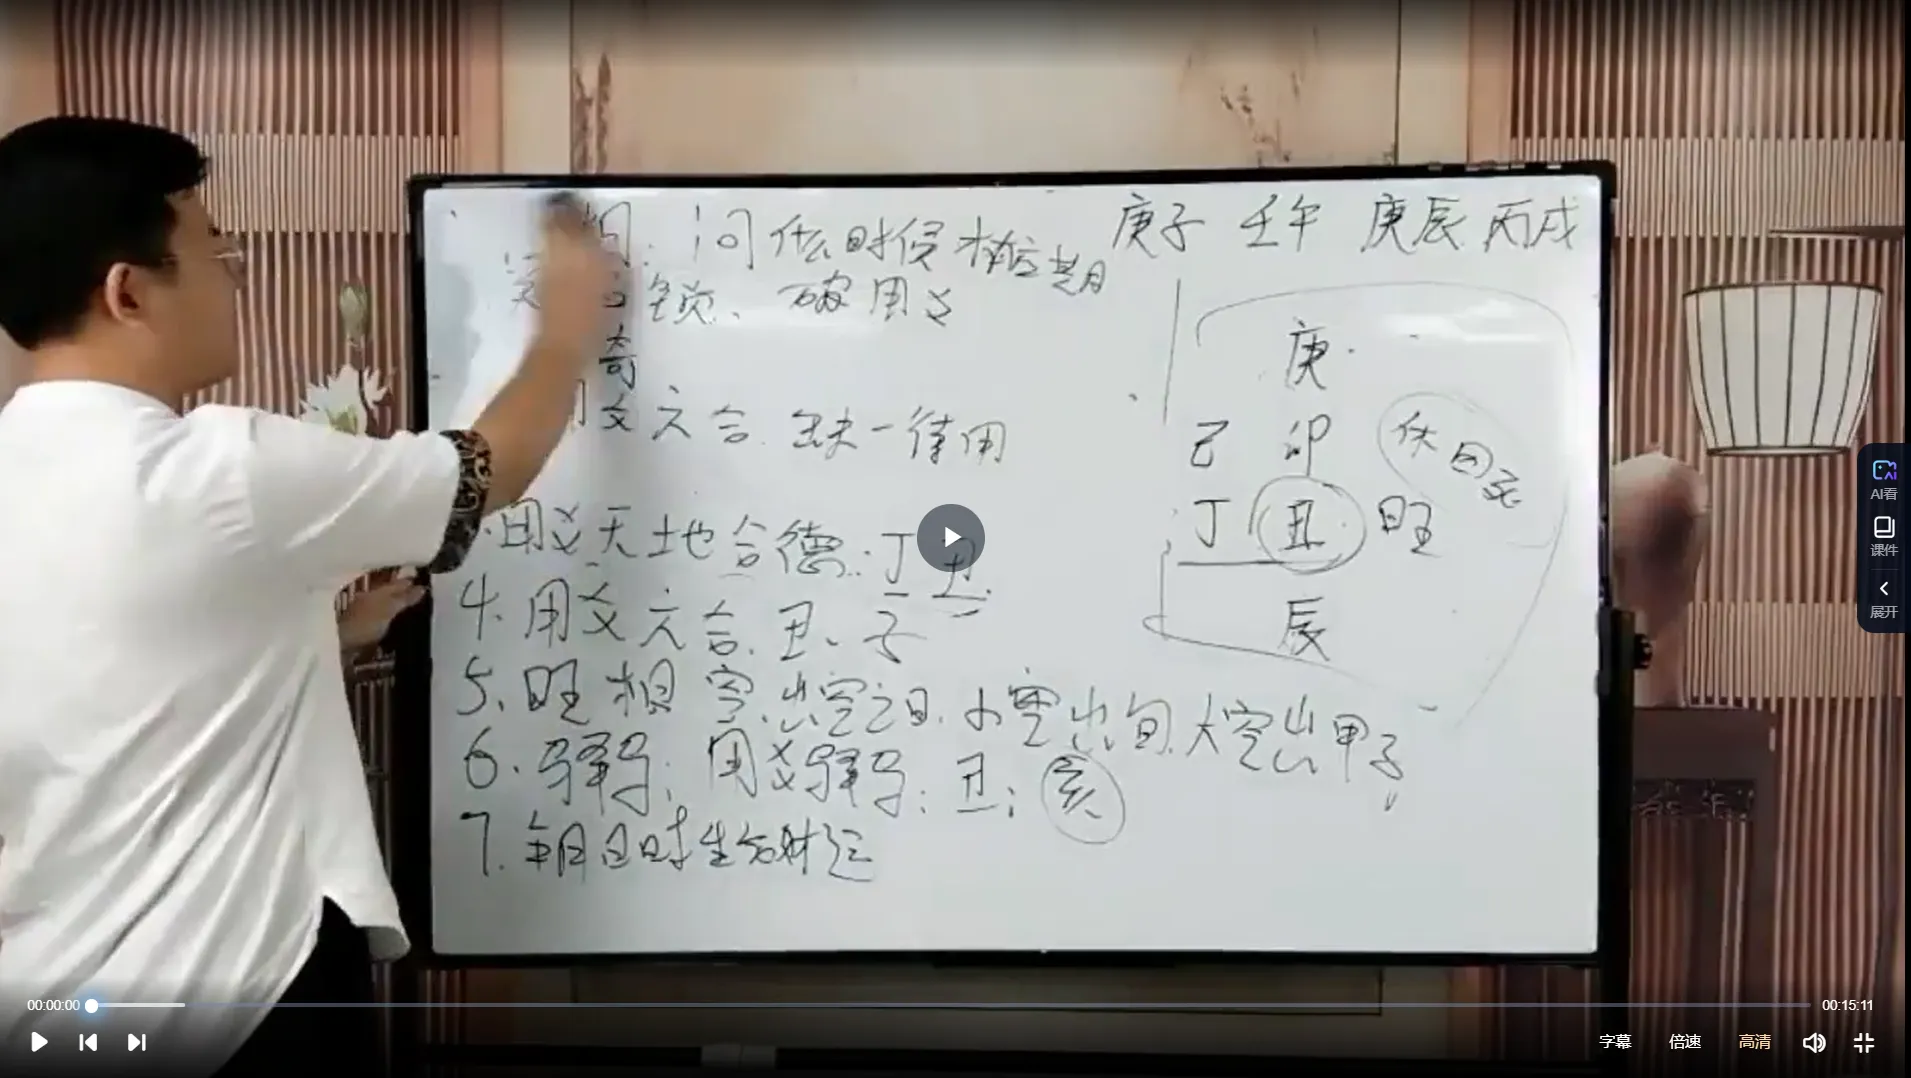 期：问什么时候 庚子 壬午 庚辰 丙戌
锁、破用爻
奇
爻六合 缺一待用
用爻天地合德：丁丑
4、用爻六合 丑、子
5、旺相空，出空之日，小空出旬，大空出甲子
6、驿马：用爻驿马：丑；亥
7、年月日时生
庚
己 卯 休囚死
丁 丑 旺
辰
AI看
课件
展开
00:00:00 00:15:11
字幕 倍速 高清